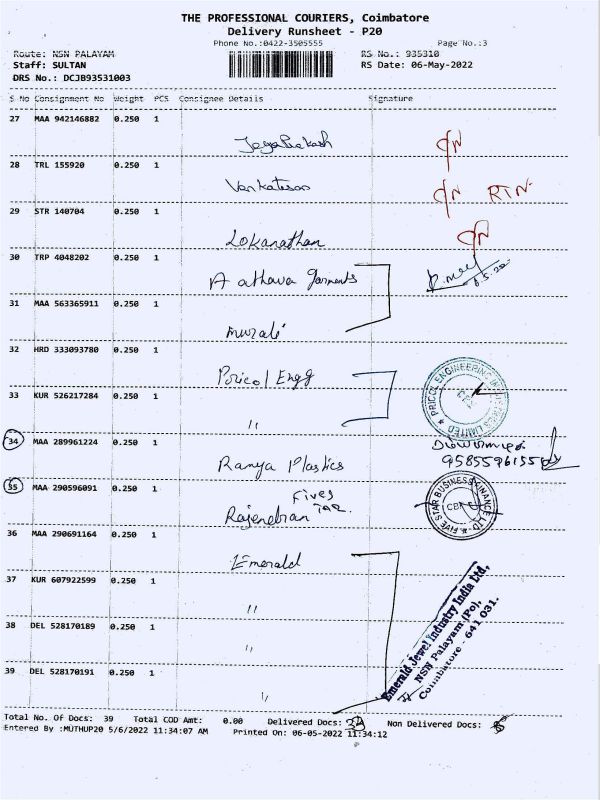 THE PROFESSIONAL COURIERS, Coimbatore
Delivery Runsheet - P20
Phone No.:0422-3505555 Page No.:3
Route: NSN PALAYAM RS No.: 935310
Staff: SULTAN RS Date: 06-May-2022
DRS No.: DCJB93531003
S No Consignment No Weight PCS Consignee Details Signature
27 MAA 942146882 0.250 1
28 TRL 155920 0.250 1
Venkatesan RTN.
29 STR 140704 0.250 1
Lokanathan
30 TRP 4048202 0.250 1
A athava Garments
31 MAA 563365911 0.250 1
Murali
32 HRD 333093780 0.250 1
Pricol Engg
PRICOL ENGINEERING LIMITED
33 KUR 526217284 0.250 1
"
34 MAA 289961224 0.250 1
Ranga Plastics
35 MAA 290596091 0.250 1
Fives
Rajendran
FIVE STAR BUSINESS FINANCE LTD
CBE
36 MAA 290691164 0.250 1
Emerald
37 KUR 607922599 0.250 1
"
Emerald Jewel Industry India Ltd,
NSN Palayam (Po),
Coimbatore - 641 031.
38 DEL 528170189 0.250 1
"
39 DEL 528170191 0.250 1
"
Total No. Of Docs: 39 Total COD Amt: 0.00 Delivered Docs: Non Delivered Docs:
Entered By :MUTHUP20 5/6/2022 11:34:07 AM Printed On: 06-05-2022 11:34:12